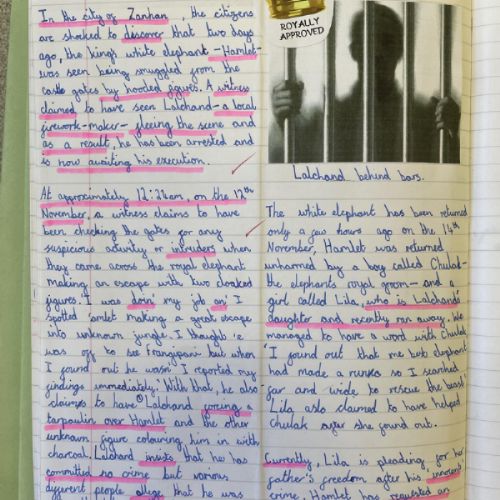 In the city of Zanhan, the citizens
are shocked to discover that two days
ago, the king's white elephant - Hamlet -
was seen being smuggled from the
castle gates by hooded figures. A witness
claimed to have seen Lalchand - a local
firework-maker - fleeing the scene and
as a result, he has been arrested and
is now awaiting his execution.
At approximately 12:24am, on the 12th
November, a witness claims to have
been checking the gates for any
suspicious activity or intruders when
they came across the royal elephant
making an escape with two cloaked
figures. 'I was doin' my job an' I
spotted 'amlet making a great escape
into unknown jungle. I thought 'e
was off to see Frangipani but when
I found out he wasn' I reported my
findings immediately.' With that, he also
claims to have Lalchand forcing a
tarpaulin over Hamlet and the other
unknown figure colouring him in with
charcoal. Lalchand insists that he has
committed no crime but various
different people allege that he was
ROYALLY
APPROVED
Lalchand behind bars.
The white elephant has been returned
only a few hours ago on the 14th
November, Hamlet was returned
unharmed by a boy called Chulak -
the elephants royal groom - and a
girl called Lila, who is Lalchands'
daughter and recently ran away. We
managed to have a word with Chulak
'I found out that me best elephant
had made a runna so I searched
far and wide to rescue the beast'
Lila aslo claimed to have helped
Chulak after she found out.
Currently, Lila is pleading for her
father's freedom after his innocents'
crime. Hamlet has requested an